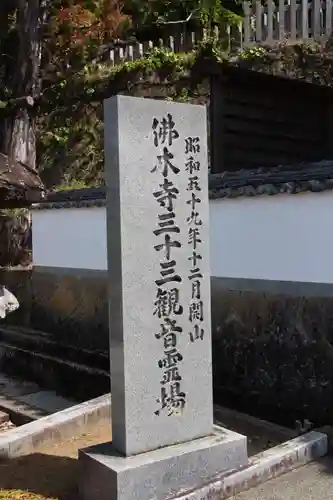 佛木寺三十三観音霊場
昭和五十九年十二月開山